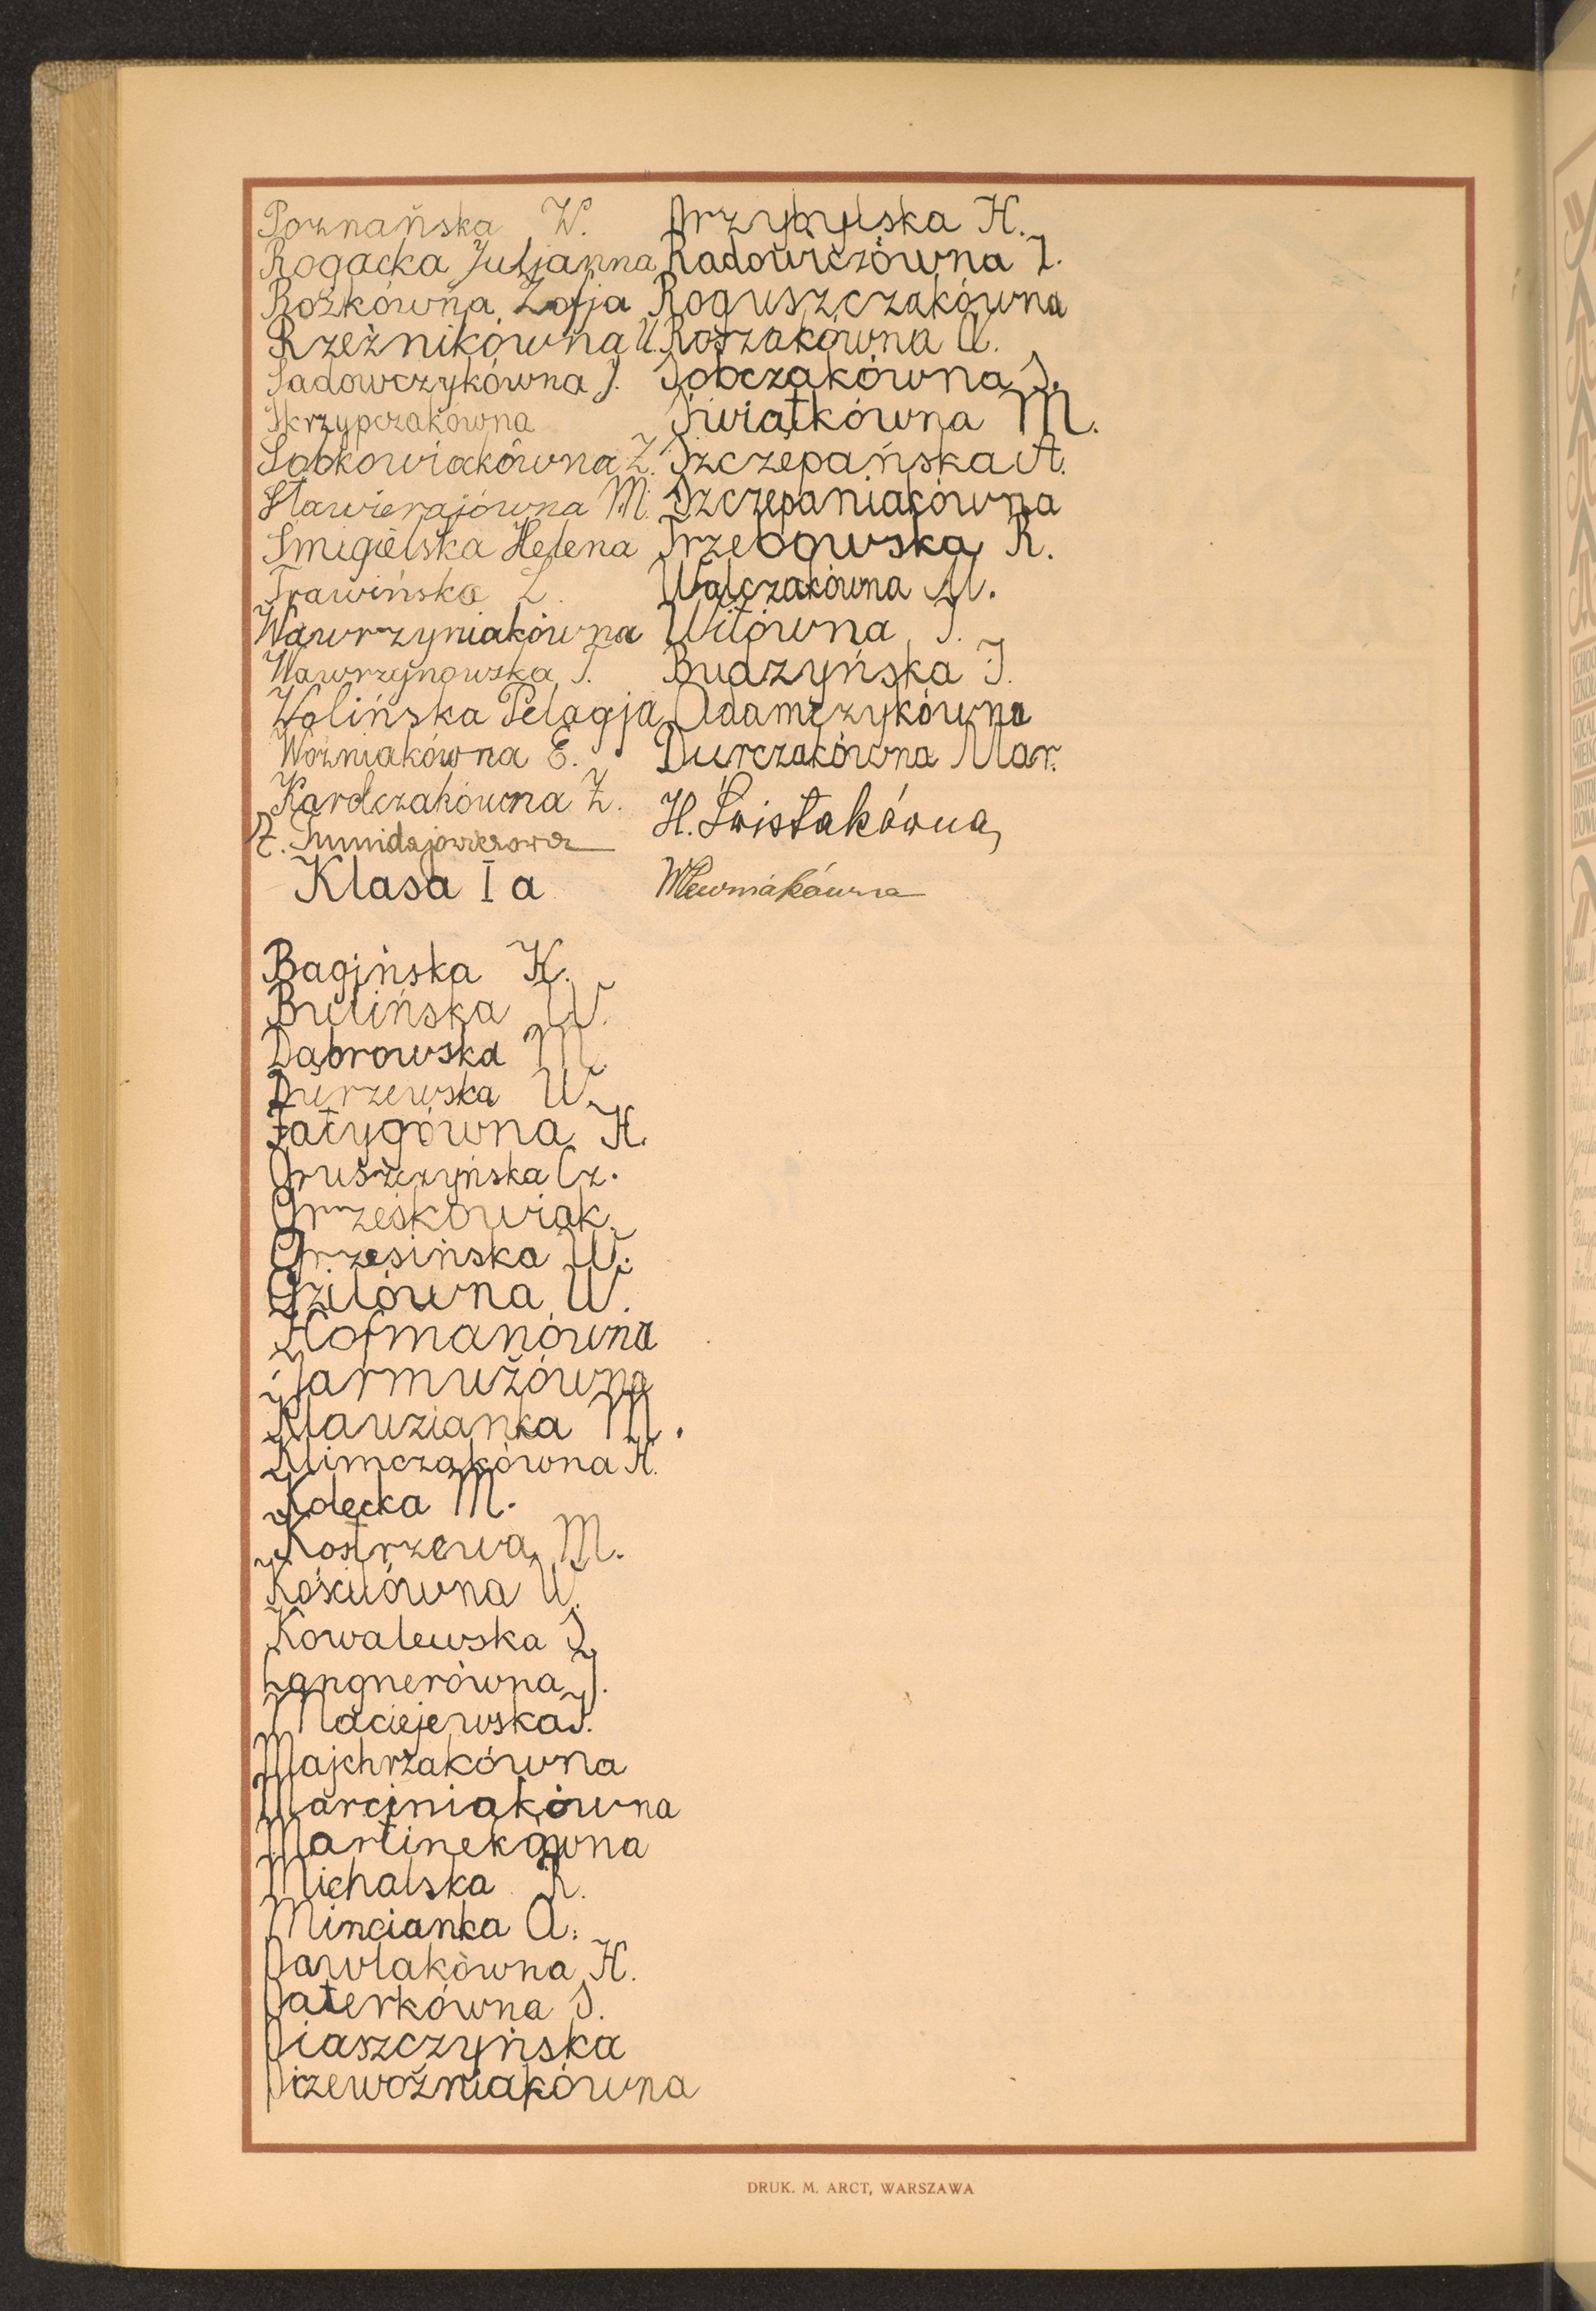 Poznańska W.
Rogacka Juljanna
Rożkówna Zofja
Rzeźnikówna U.
Sadowczykówna J.
Skrzypczakówna
Sobkowiakówna Z.
Stawierajówna M.
Śmigielska Helena
Trawińska L.
Wawrzyniakówna
Wawrzynowska S.
Wolińska Pelagja
Woźniakówna E.
Karolczakówna Z.
Klasa I a
Przybylska H.
Radowiczówna I.
Roguszczakówna
Roszakówna A.
Sobczakówna S.
Świątkówna M.
Szczepańska A.
Szczepaniakówna
Trzebowska R.
Walczakówna M.
Witówna J.
Budzyńska J.
Adamczykówna
Durczakówna Mar.
H. Świstakówna
Bagińska K.
Bulińska W.
Dąbrowska M.
Durzewska W.
Fatygówna H.
Gruszczyńska Cz.
Grześkowiak
Grzesińska W.
Gzilówna W.
Hofmanówna
Jarmużówna
Klauzianka M.
Klimczakówna H.
Kolecka M.
Kostrzewa M.
Kościówna W.
Kowalewska S.
Langnerówna J.
Maciejewska J.
Majchrzakówna
Marciniakówna
Martinekówna
Michalska R.
Mincianka A.
Pawlakówna H.
Paterkówna S.
Piaszczyńska
Przewoźniakówna
DRUK. M. ARCT, WARSZAWA